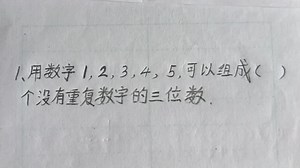 1、用数字1,2,3,4,5,可以组成( )
个没有重复数字的三位数.